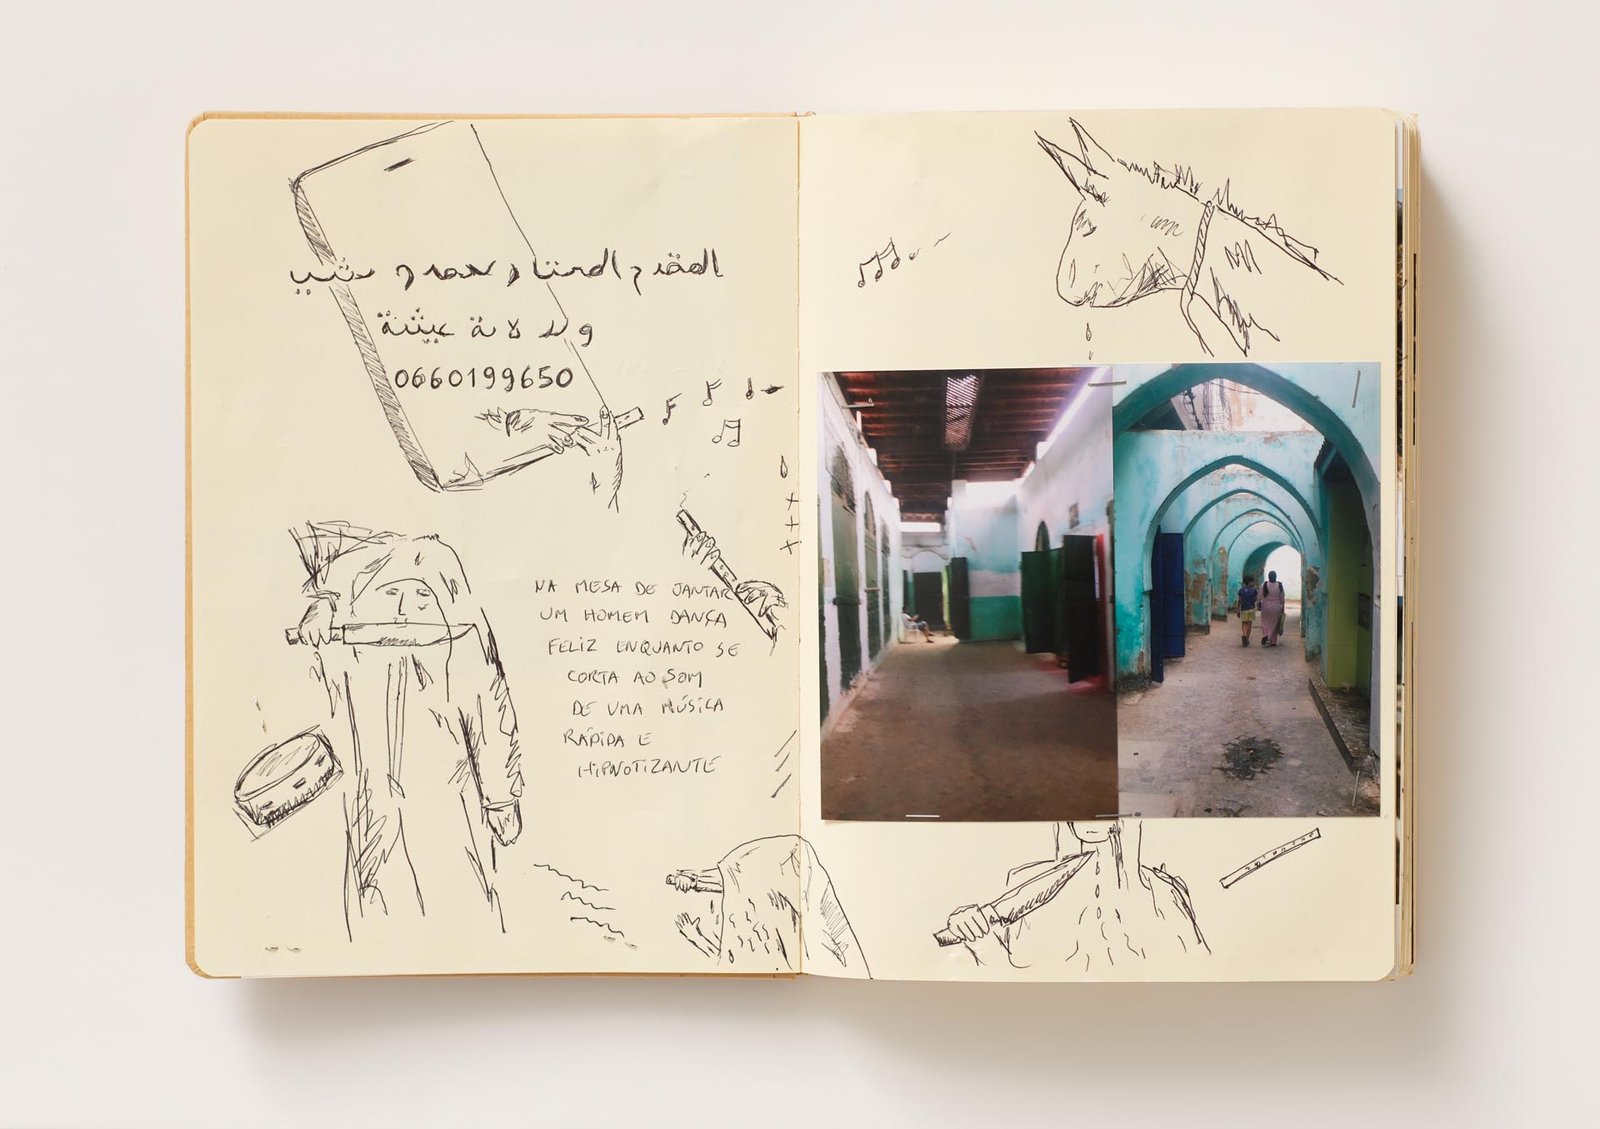 المقدم
عيشة
0660199650
NA MESA DE JANTAR
UM HOMEM DANÇA
FELIZ ENQUANTO SE
CORTA AO SOM
DE UMA MÚSICA
RÁPIDA E
HIPNOTIZANTE